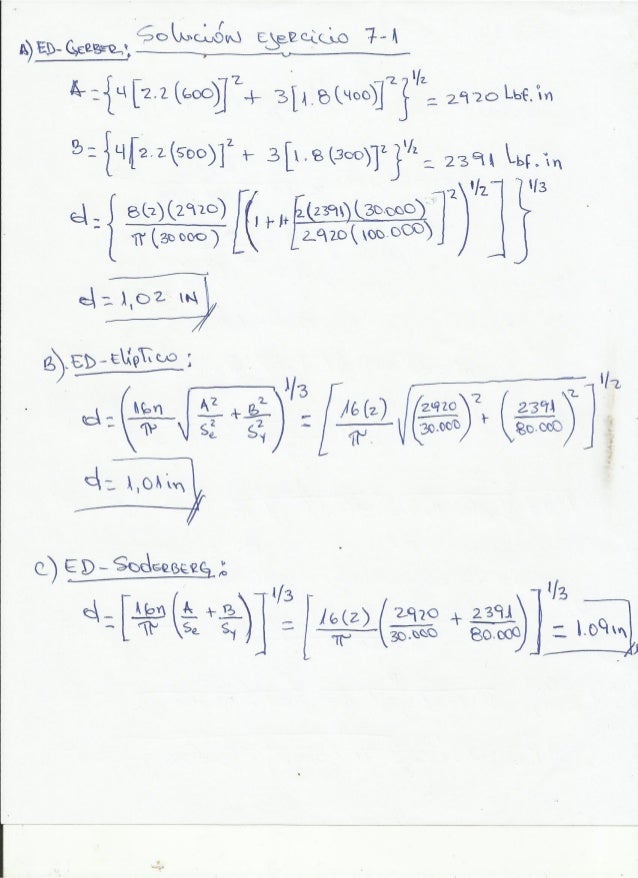 Solución Ejercicio 7-1
A) ED-GERBER:
A = {4[2.2(600)]² + 3[1.8(400)]²}^1/2 = 2920 Lbf.in
B = {4[2.2(500)]² + 3[1.8(300)]²}^1/2 = 2391 Lbf.in
d = { 8(2)(2920) / π(30000) [ ( 1 + 1+ [ 2(2391)(30.000) / 2920(100.000) ]² )^1/2 ] }^1/3
d = 1,02 IN
B). ED-Elíptico:
d = ( 16n/π √( A²/Se² + B²/Sy² ) )^1/3 = [ 16(2)/π. √( (2920/30.000)² + (2391/80.000)² ) ]^1/2
d = 1,01 in
C) ED-SODERBERG:
d = [ 16n/π ( A/Se + B/Sy ) ]^1/3 = [ 16(2)/π ( 2920/30.000 + 2391/80.000 ) ]^1/3 = 1.09in